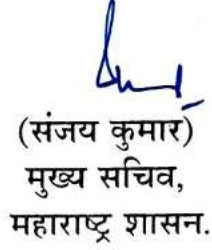 (संजय कुमार)
मुख्य सचिव,
महाराष्ट्र शासन.